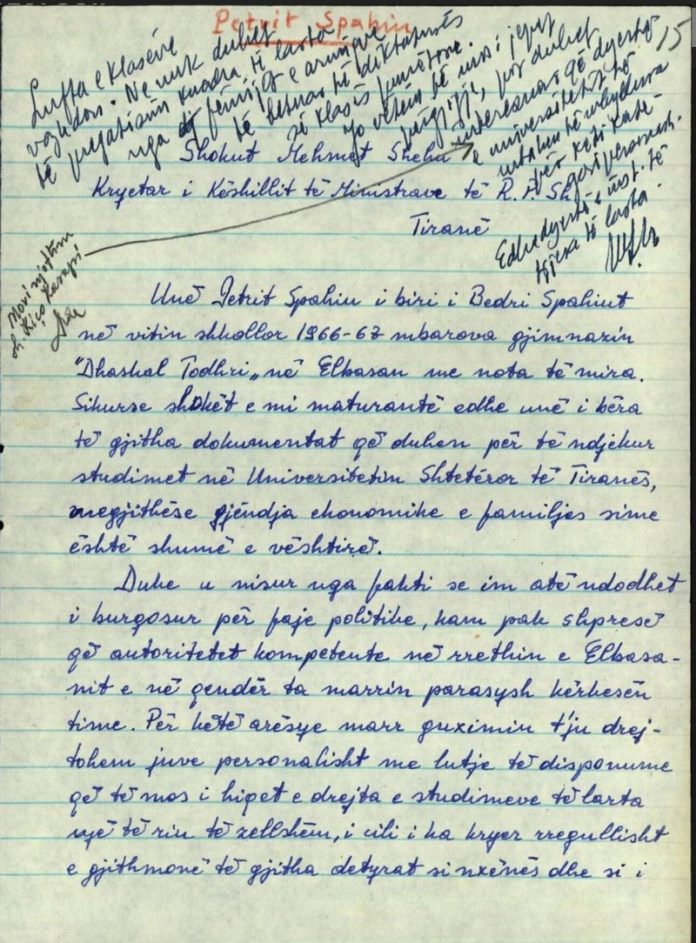 Petrit Spahiu
15
Lufta e klasëve
vazhdon. Ne nuk duhet
të pregatisim kuadra të lartë
nga fëmijët e armiqve
të betuar të diktaturës
së klasës punëtore.
Jo vetëm të mos i jepet
përgjigje, por duhet
interesuar që dyert
e universitetit të
mbahen të mbyllura
për këtë kate-
gori personash.
Edhe dyert e inst. të
tjera të larta.
Mori njoftim
sh. Kiço
Shokut Mehmet Shehu
Kryetar i Këshillit të Ministrave të R.P.Sh.
Tiranë
Unë Petrit Spahiu i biri i Bedri Spahiut
në vitin shkollor 1966-67 mbarova gjimnazin
"Dhaskal Todhri" në Elbasan me nota të mira.
Sikurse shokët e mi maturantë edhe unë i bëra
të gjitha dokumentat që duhen për të ndjekur
studimet në Universitetin Shtetëror të Tiranës,
megjithëse gjëndja ekonomike e familjes sime
është shumë e vështirë.
Duke u nisur nga fakti se im atë ndodhet
i burgosur për faje politike, kam pak shpresë
që autoritetet kompetente në rrethin e Elbasa-
nit e në qendër ta marrin parasysh kërkesën
time. Për këtë arësye marr guximin t'ju drej-
tohem juve personalisht me lutje të disponume
që të mos i hiqet e drejta e studimeve të larta
një të riu të zellshëm, i cili i ka kryer rregullisht
e gjithmonë të gjitha detyrat si nxënës dhe si i